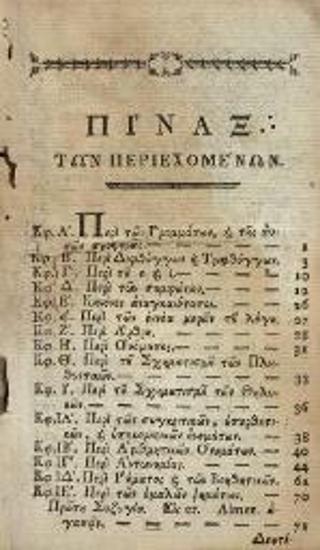 ΠΙΝΑΞ
ΤΩΝ ΠΕΡΙΕΧΟΜΕΝΩΝ.
Κφ. Α΄. Περὶ τῶν Γραμμάτων, ἢ τῆς
— — — 1
Κφ. Β΄. Περὶ Διφθόγγων ἢ Τριφθόγγων. 3
Κφ. Γ΄. Περὶ τοῦ — — — 10
Κφ. Δ΄. Περὶ τῶν συμφώνων, — — 12
Κφ. Ε΄. Κανόνες ἀναγκαιότατοι. 26
Κφ. ς΄. Περὶ τῶν ἐννέα μερῶν τοῦ λόγου. 27
Κφ. Ζ΄. Περὶ Ἄρθρου. — — — 28
Κφ. Η΄. Περὶ Ὀνόματος. — — — 31
Κφ. Θ΄. Περὶ τοῦ Σχηματισμοῦ τῶν Πλη-
θυντικῶν. — — — 33
Κφ. Ι΄. Περὶ τοῦ Σχηματισμοῦ τῶν Θηλυ-
κῶν. — — — 36
Κφ. ΙΑ΄. Περὶ τῶν συγκριτικῶν, ὑπερθετι-
κῶν, ἢ ὑποκοριστικῶν ὀνομάτων. — 38
Κφ. ΙΒ΄. Περὶ Ἀριθμητικῶν Ὀνομάτων. — 40
Κφ. ΙΓ΄. Περὶ Ἀντωνυμίας. — — 44
Κφ. ΙΔ΄. Περὶ Ῥήματος ἢ τῶν Βοηθητικῶν. 62
Κφ. ΙΕ΄. Περὶ τῶν ὁμαλῶν ῥημάτων, 70
Πρώτη Συζυγία. Εἰς er. Aimer.
— — — 71
Δευτέ-